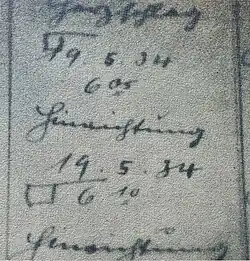 19.5.34
6 05
Hinrichtung
19.5.34
6 10
Hinrichtung